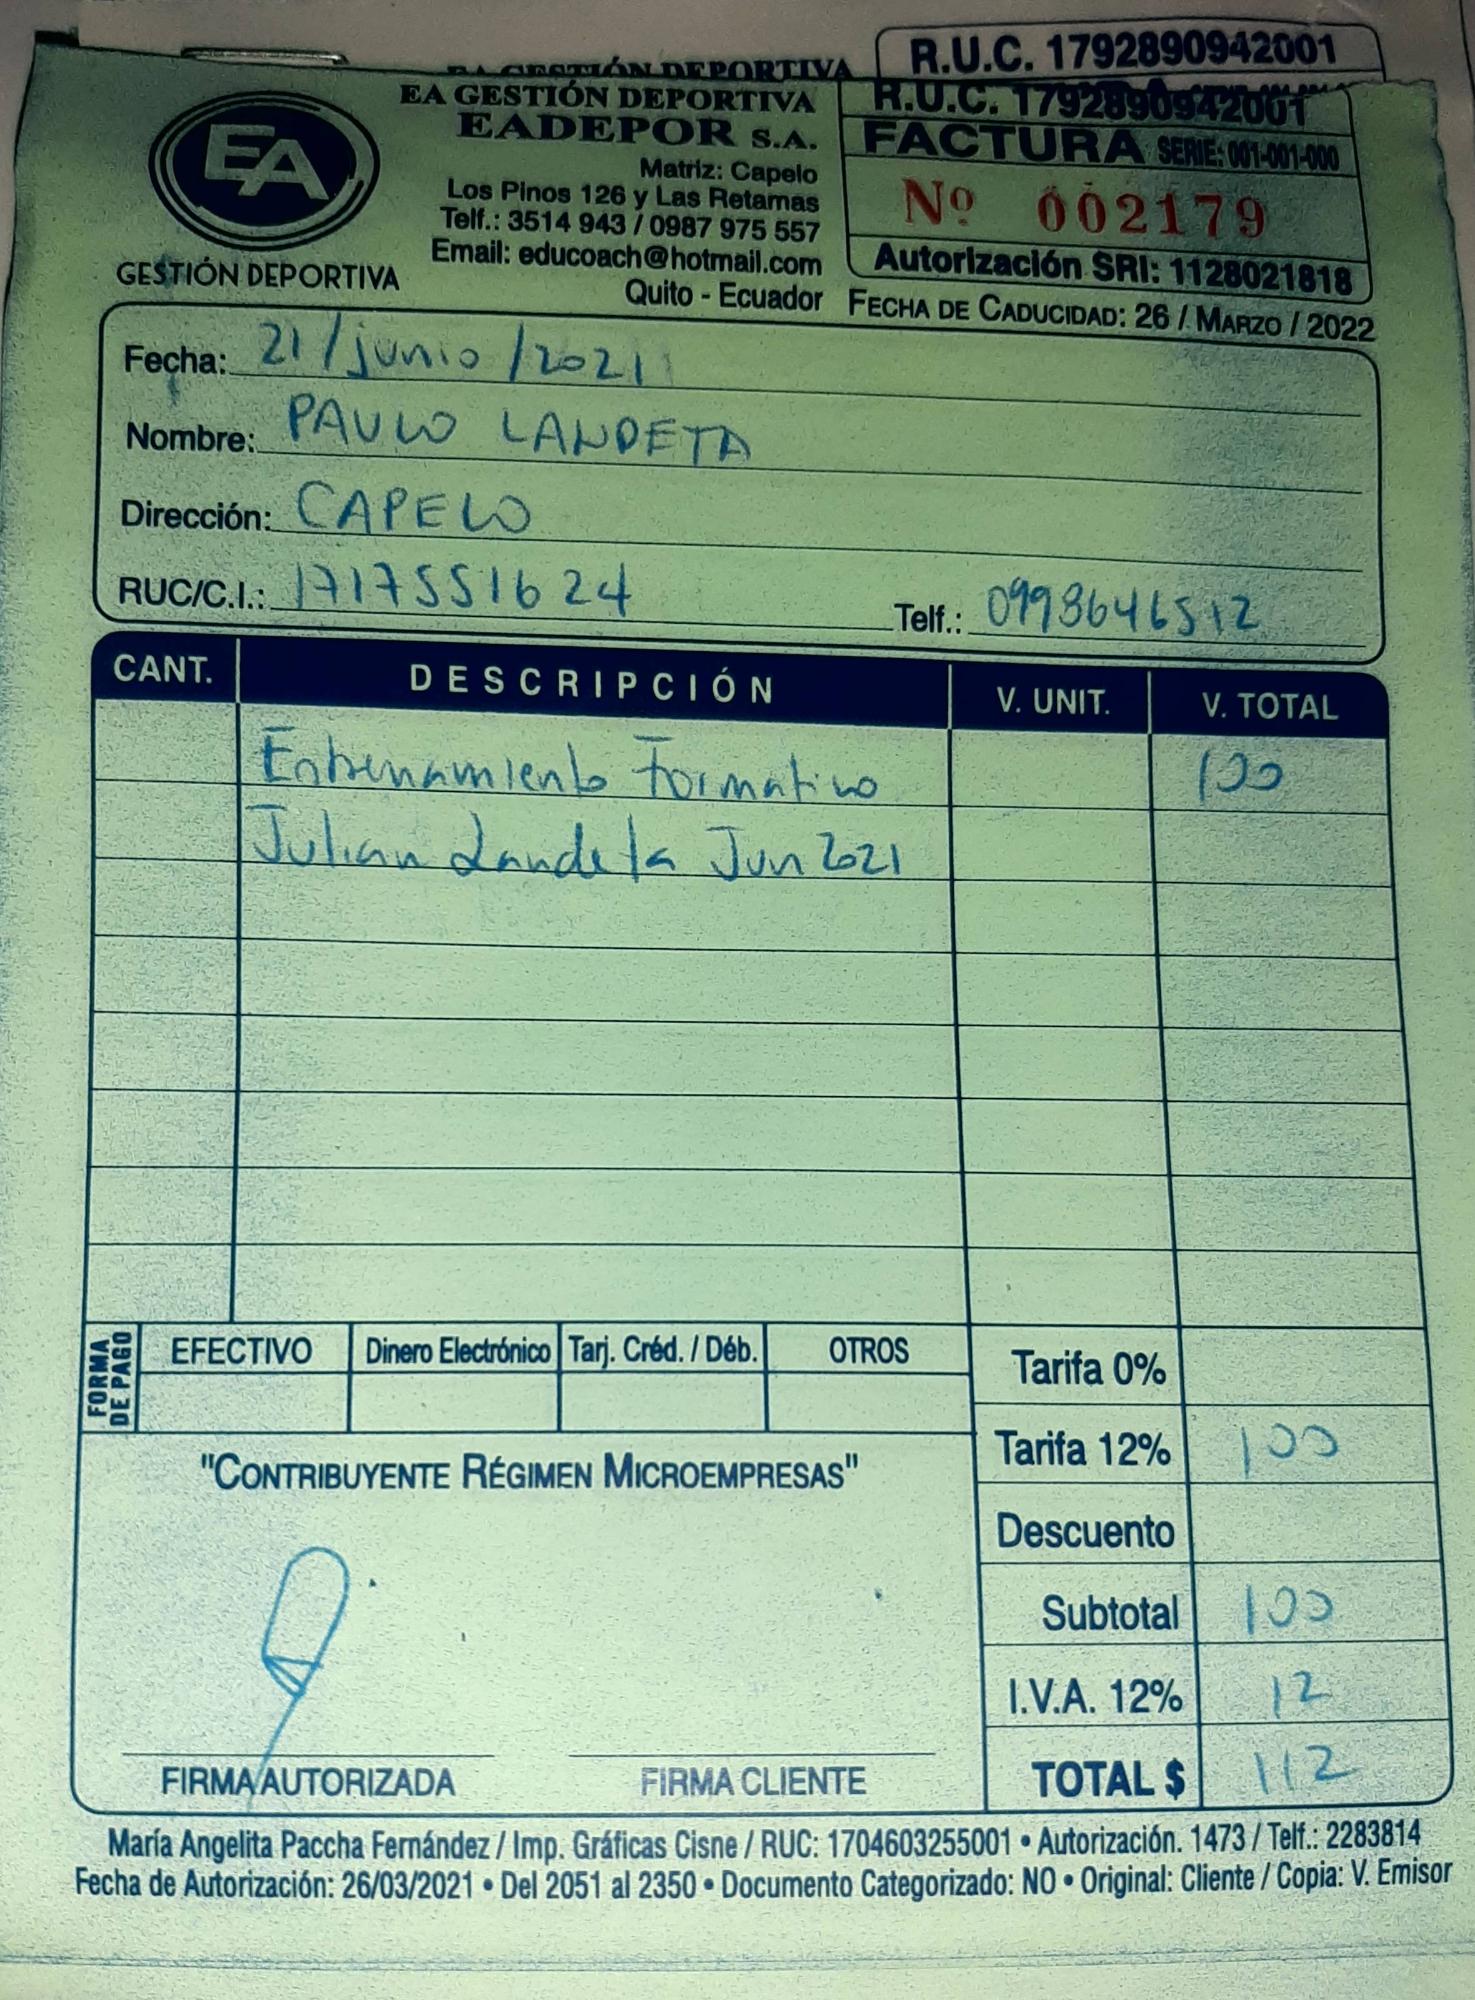 EA GESTIÓN DEPORTIVA
R.U.C. 1792890942001
EA
GESTIÓN DEPORTIVA
EA GESTIÓN DEPORTIVA
EADEPOR S.A.
Matriz: Capelo
Los Pinos 126 y Las Retamas
Telf.: 3514 943 / 0987 975 557
Email: educoach@hotmail.com
Quito - Ecuador
R.U.C. 1792890942001
FACTURA SERIE: 001-001-000
Nº 002179
Autorización SRI: 1128021818
FECHA DE CADUCIDAD: 26 / MARZO / 2022
Fecha: 21/junio/2021
Nombre: PAULO LANDETA
Dirección: CAPELO
RUC/C.I.: 1717551624 Telf.: 0998646512
CANT. DESCRIPCIÓN V. UNIT. V. TOTAL
Entrenamiento Formativo 100
Julian Landeta Jun 2021
FORMA DE PAGO
EFECTIVO Dinero Electrónico Tarj. Créd. / Déb. OTROS
Tarifa 0%
Tarifa 12% 100
"CONTRIBUYENTE RÉGIMEN MICROEMPRESAS"
Descuento
Subtotal 100
I.V.A. 12% 12
TOTAL $ 112
FIRMA AUTORIZADA FIRMA CLIENTE
María Angelita Paccha Fernández / Imp. Gráficas Cisne / RUC: 1704603255001 • Autorización. 1473 / Telf.: 2283814
Fecha de Autorización: 26/03/2021 • Del 2051 al 2350 • Documento Categorizado: NO • Original: Cliente / Copia: V. Emisor